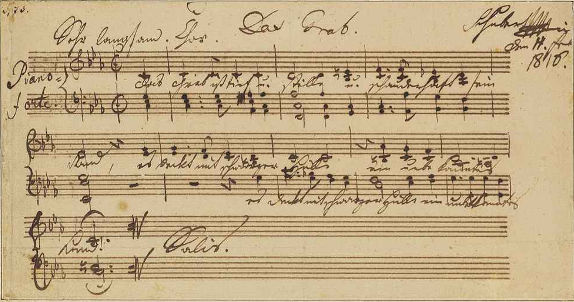 Sehr langsam. Chor. Das Grab. Schubert
den 11.
1816.
Piano-
forte.
Das Grab ist tief u. stille u. schauderhaft sein
Rand, es deckt mit schwarzer Hülle ein unbekanntes
es deckt mit schwarzer Hülle ein unbekanntes
Land. Salis.